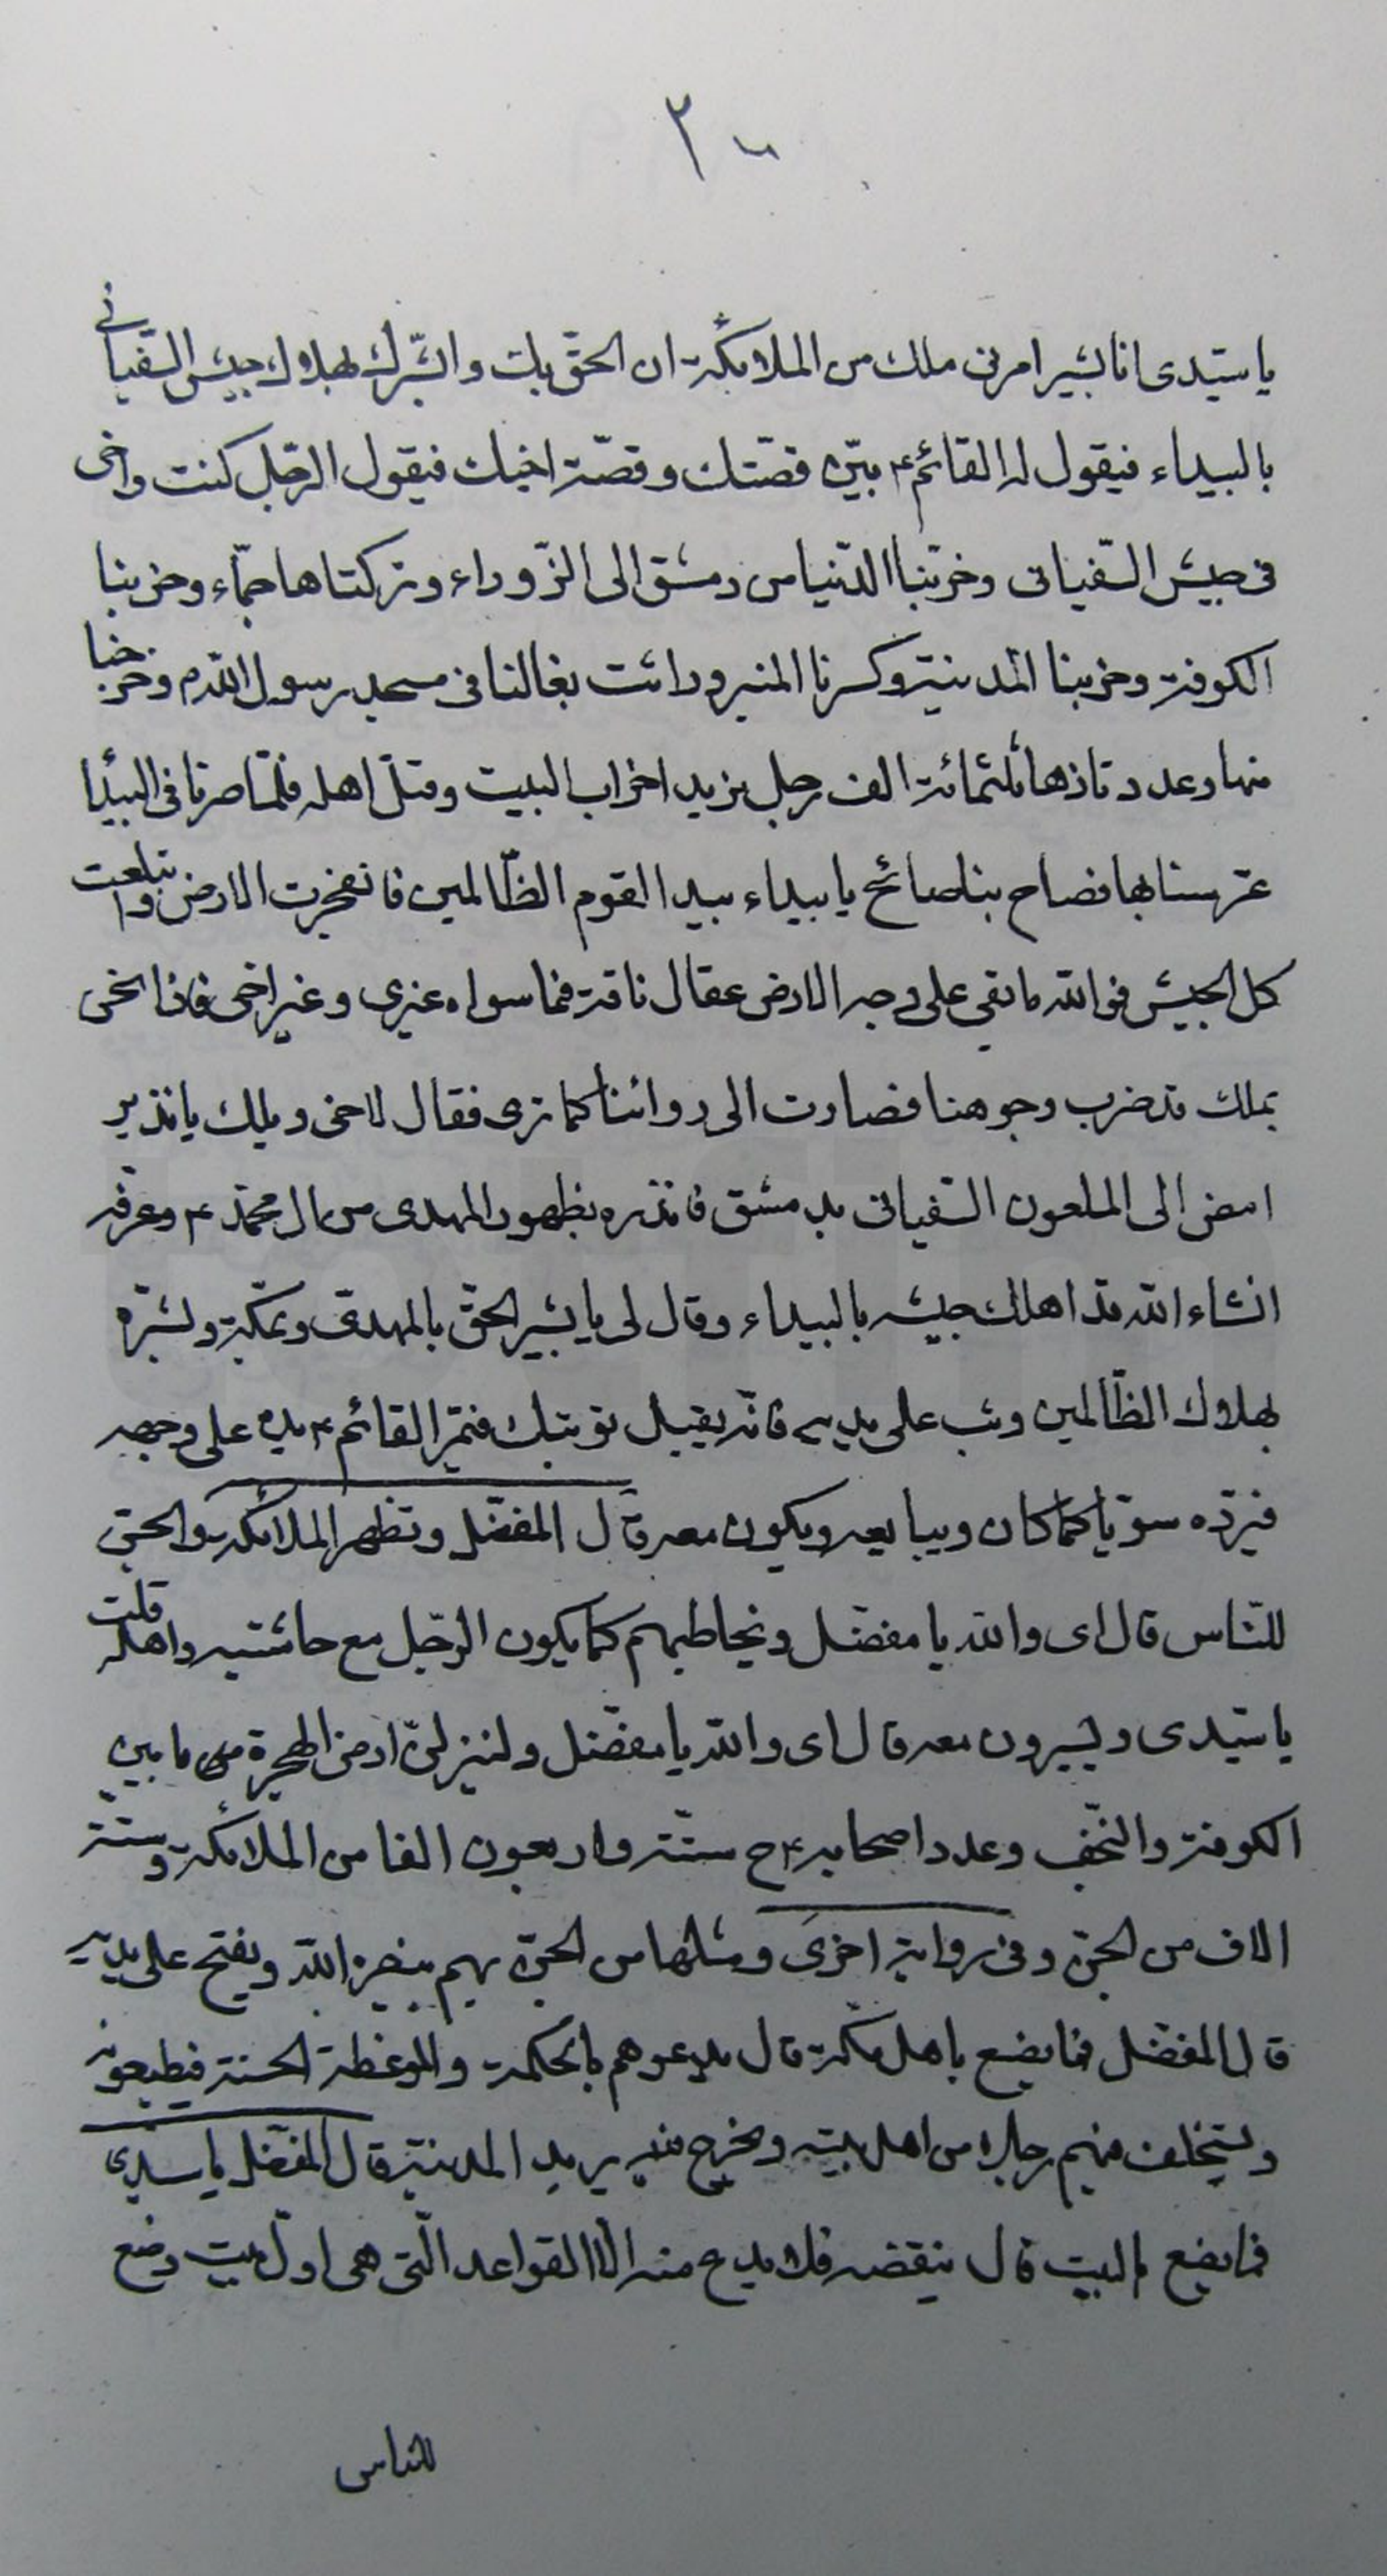 ٢٠٠
يا سيّدى انا بشير امرنى ملك من الملائكة ان الحق بك وابشّرك بهلاك جيش السّفيانى
بالبيداء فيقول له القائم ع بيّن قصّتك وقصّة اخيك فيقول الرّجل كنت واخى
فى جيش السّفيانى وخرّبنا الدّنيا من دمشق الى الزّوراء وتركناها جمّاء وخربنا
الكوفة وخربنا المدينة وكسرنا المنبر وراثت بغالنا فى مسجد رسول اللّه ص وخرجنا
منها وعددنا ثلثمائة الف رجل نريد اخراب البيت وقتل اهله فلمّا صرنا فى البيدا
عرسنا بها فصاح بنا صائح يا بيداء بيدا القوم الظّالمين فانفجرت الارض وابتلعت
كل الجيش فو اللّه ما بقى على وجه الارض عقال ناقة فما سواه غيرى وغير اخى فاذا نحن
بملك قد ضرب وجوهنا فصارت الى ورائنا كما ترى فقال لاخى ويلك يا نذير
امض الى الملعون السّفيانى بدمشق فانذره بظهور المهدى من ال محمّد ع وعرّفه
انشاء اللّه قد اهلك جيشه بالبيداء وقال لى يا بشير الحق بالمهدى بمكّة وبشّره
بهلاك الظّالمين وتب على يديه فانّه يقبل توبتك فتمرّ القائم ع يده على وجهه
فيردّه سويّا كما كان ويبايعه ويكون معه قال المفضّل وتظهر الملائكة والجنّ
للنّاس قال اى واللّه يا مفضّل ويخاطبهم كما يكون الرّجل مع حاشيته واهله قلت
يا سيّدى ويسيرون معه قال اى واللّه يا مفضّل ولينزلنّ ارض الهجرة من ما بين
الكوفة والنّجف وعدد اصحابه ع ح ستّة واربعون الفا من الملائكة وستّة
الاف من الجنّ وفى رواية اخرى ومثلها من الجنّ بهم ينصره اللّه ويفتح على يديه
قال المفضّل فما يصنع باهل مكّة قال يدعوهم بالحكمة والموعظة الحسنة فيطيعونه
ويستخلف منهم رجلا من اهل بيته ويخرج منه يريد المدينة قال المفضّل يا سيدى
فما يصنع بالبيت قال ينقضه فلا يدع منه الا القواعد الّتى هى اوّل بيت وضع
للناس